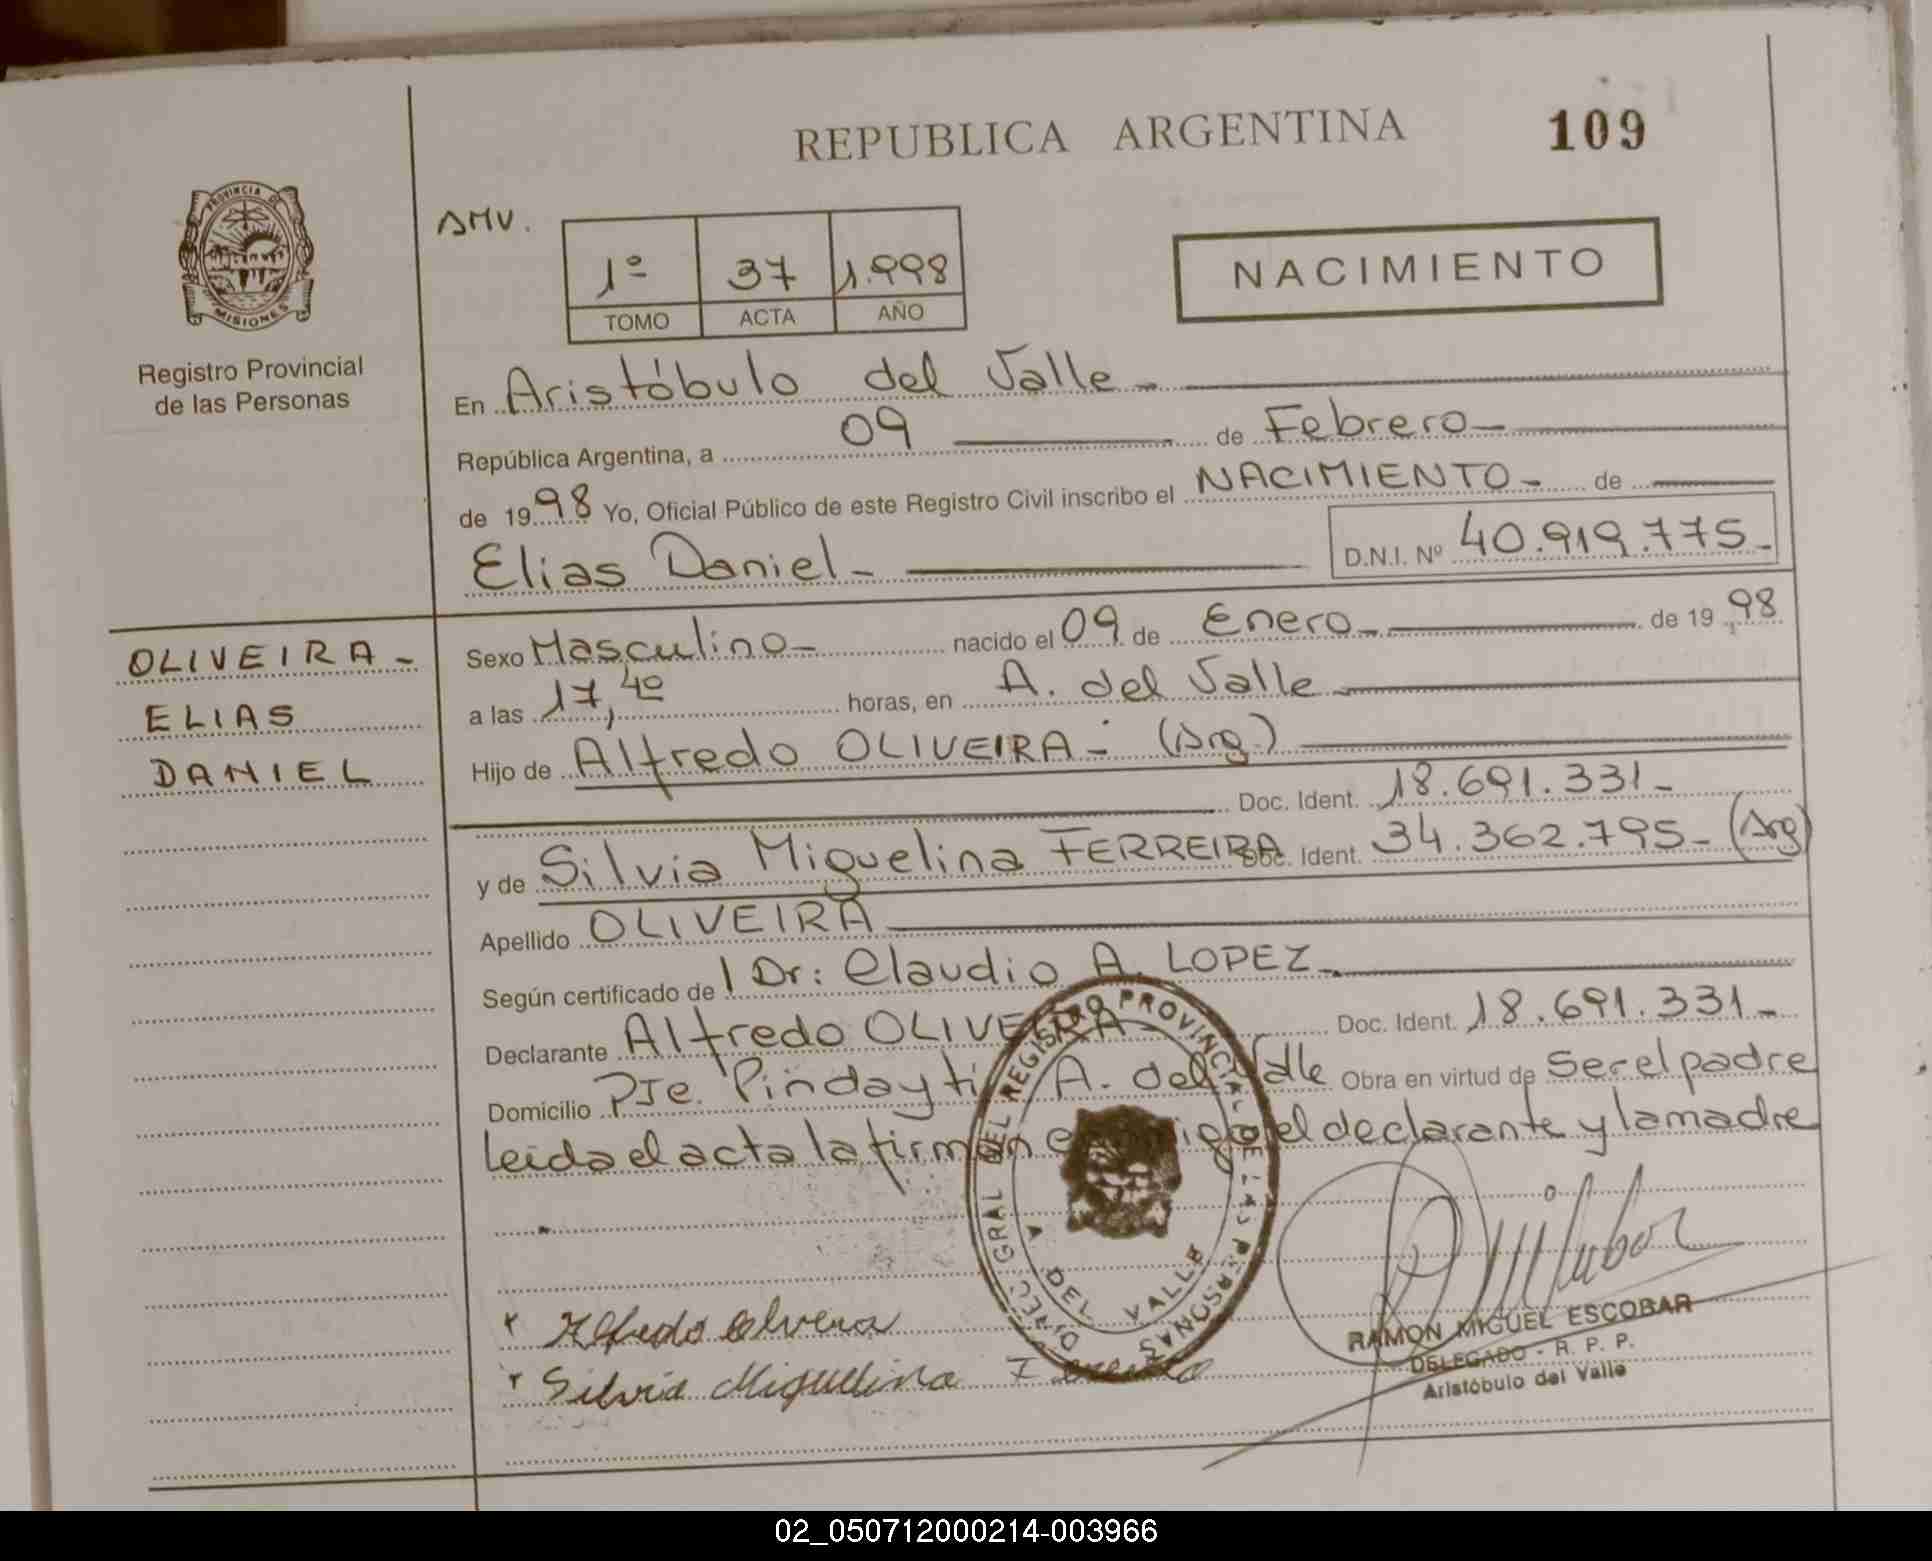 REPUBLICA ARGENTINA
109
PROVINCIA DE
MISIONES
Registro Provincial
de las Personas
AMV.
1º 37 1.998
TOMO ACTA AÑO
NACIMIENTO
En Aristóbulo del Valle
República Argentina, a 09 de Febrero
de 1998 Yo, Oficial Público de este Registro Civil inscribo el NACIMIENTO de
Elias Daniel
D.N.I. Nº 40.919.775
OLIVEIRA
ELIAS
DANIEL
Sexo Masculino nacido el 09 de Enero de 1998
a las 17,40 horas, en A. del Valle
Hijo de Alfredo OLIVEIRA (Arg)
Doc. Ident. 18.691.331
y de Silvia Miguelina FERREIRA Doc. Ident. 34.362.795 (Arg)
Apellido OLIVEIRA
Según certificado de l Dr: Claudio A. LOPEZ
Declarante Alfredo OLIVEIRA Doc. Ident. 18.691.331
Domicilio Pje. Pindayti A. del Valle Obra en virtud de Ser el padre
leida el acta la firman conmigo el declarante y la madre
DIREC. GRAL DEL REGISTRO PROVINCIAL DE LAS PERSONAS
A DEL VALLE
Alfredo Olivera
Silvia Miguelina Ferreira
RAMON MIGUEL ESCOBAR
DELEGADO - R. P. P.
Aristóbulo del Valle
02_050712000214-003966